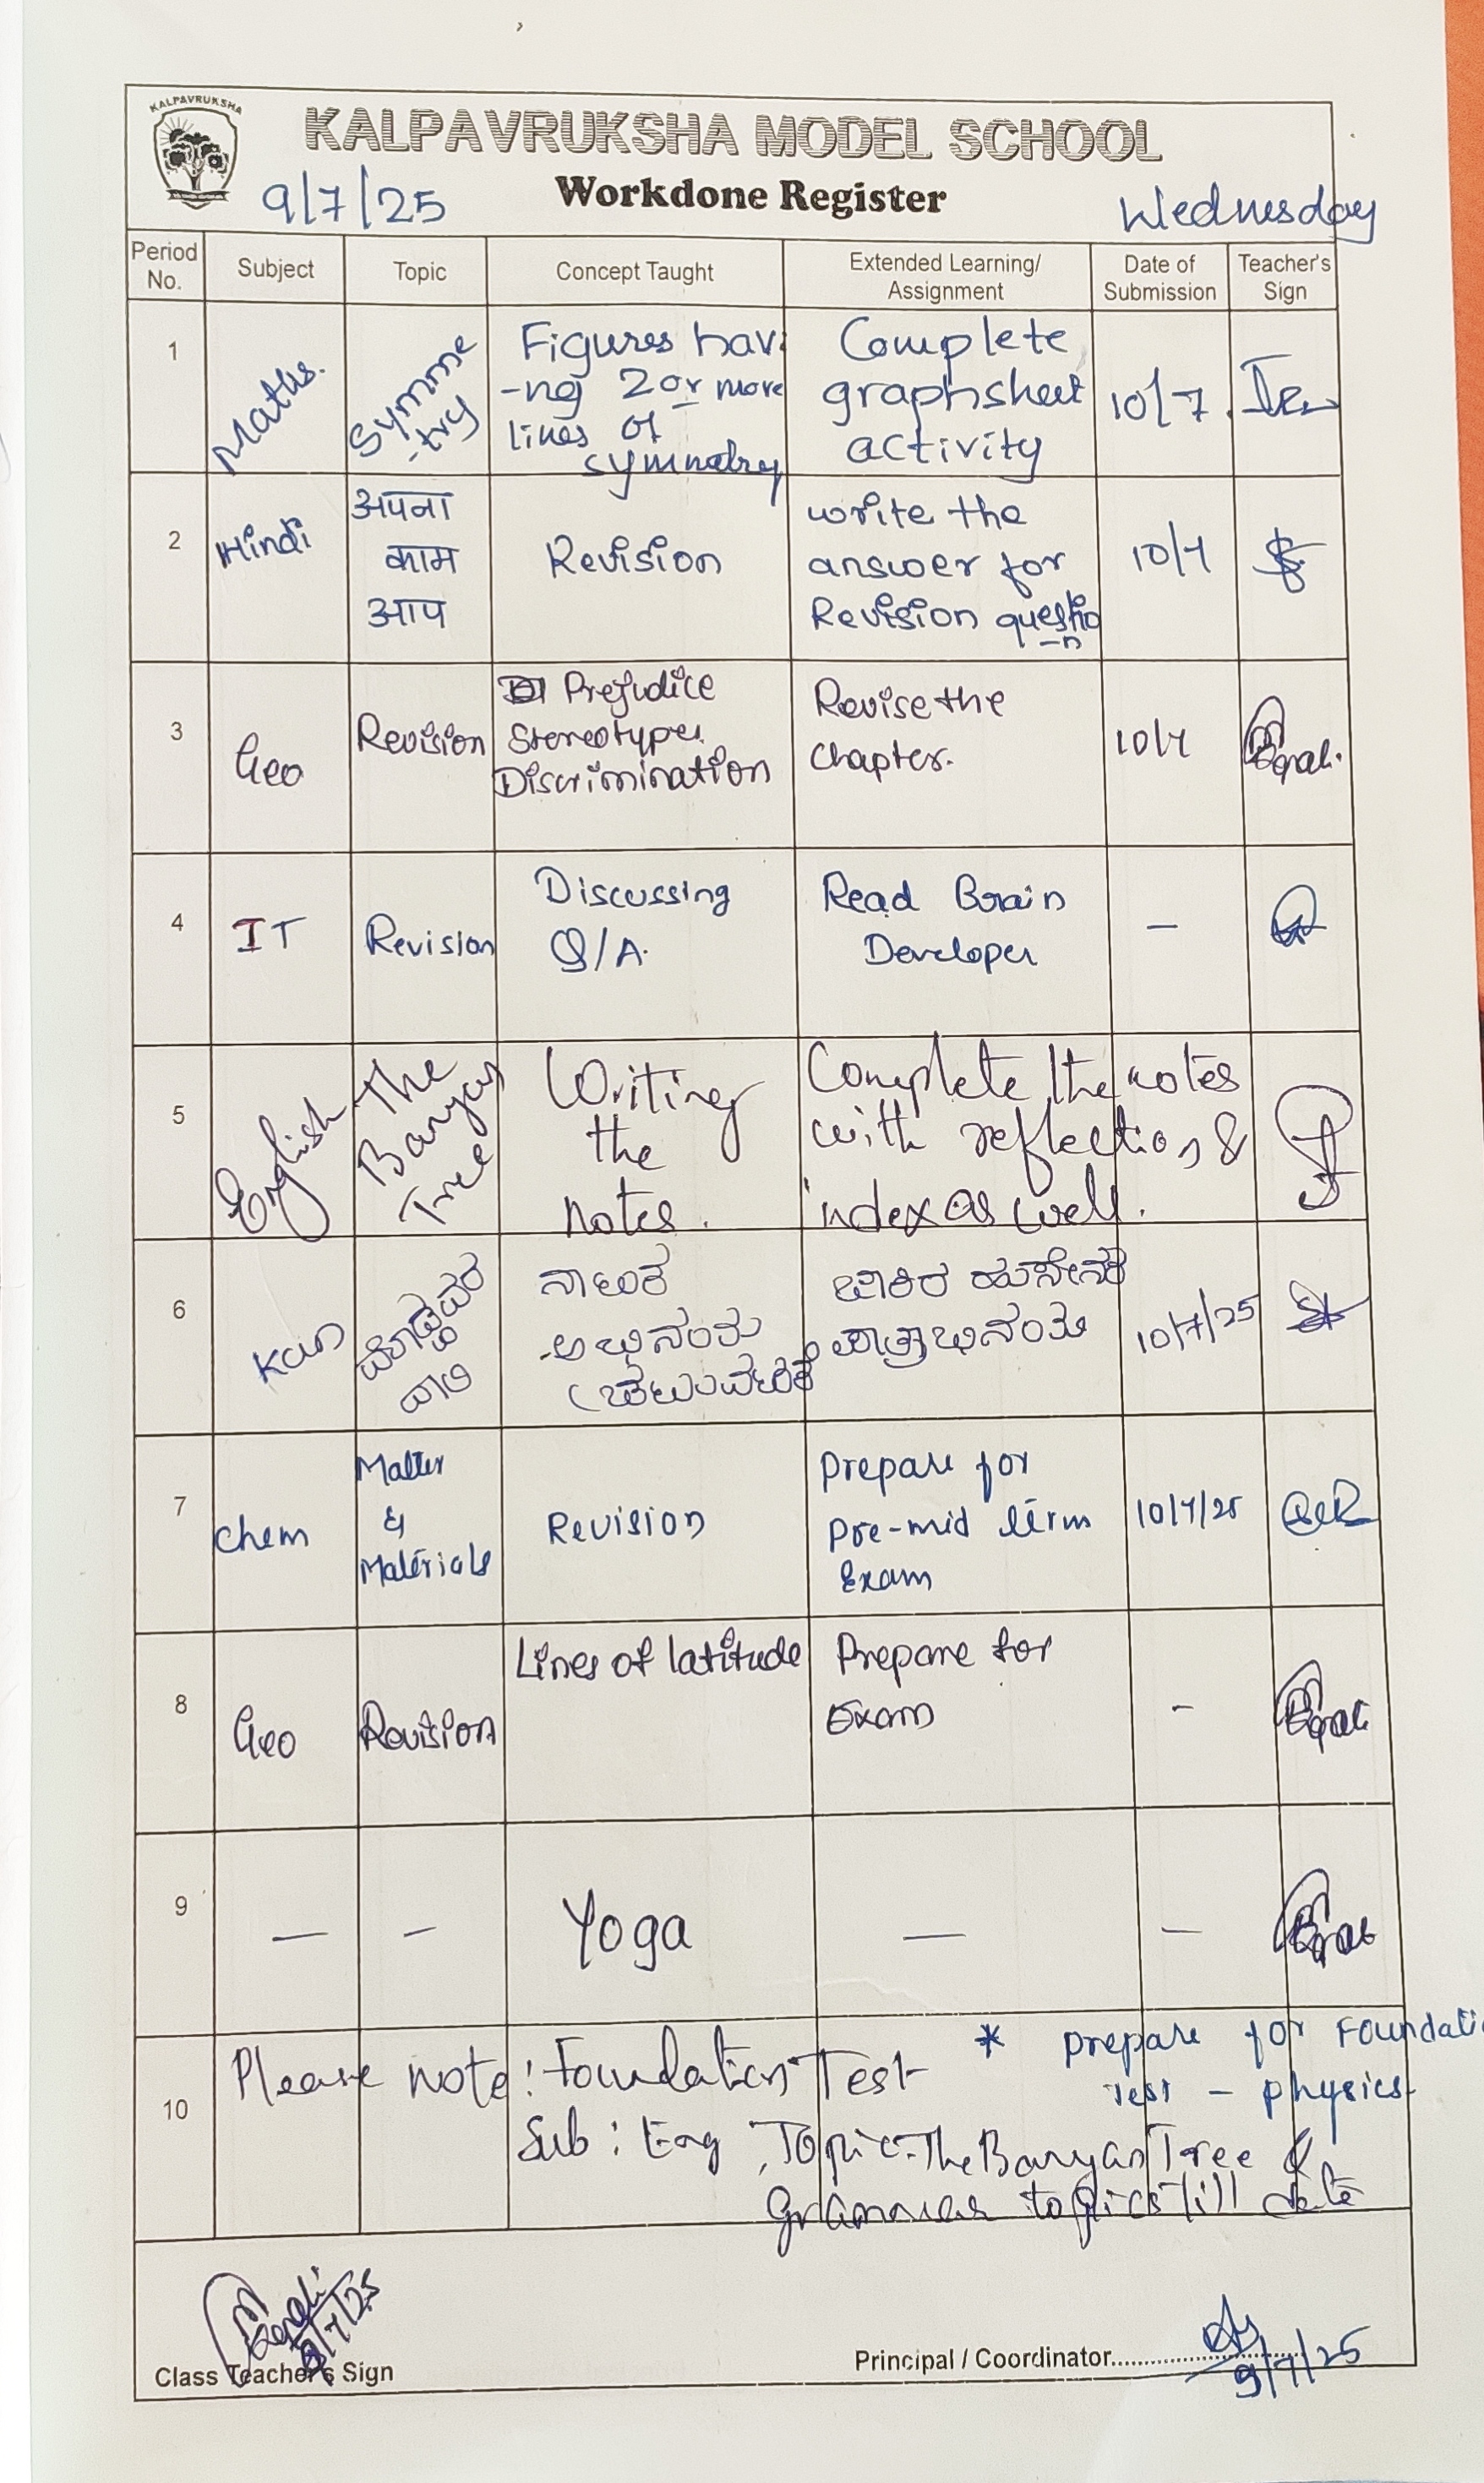 KALPAVRUKSHA
KALPAVRUKSHA MODEL SCHOOL
9/7/25
Workdone Register
Wednesday
Period No.
Subject
Topic
Concept Taught
Extended Learning/
Assignment
Date of
Submission
Teacher's
Sign
1
Maths.
Symme
-try
Figures havi
-ng 2 or more
lines of
symmetry
Complete
graphsheet
activity
10/7
2
Hindi
अपना
काम
आप
Revision
write the
answer for
Revision questio
-n
10/7
3
Geo
Revision
Prejudice
Stereotypes
Discrimination
Revise the
Chapter.
10/7
4
IT
Revision
Discussing
Q/A.
Read Brain
Developer
—
5
English
The
Banyan
Tree
Writing
the
notes.
Complete the notes
with reflection &
index as well.
6
Kan
ನಾಟಕ
ಅಭಿನಯ
ಪಾತ್ರಾಭಿನಯ
10/7/25
7
Chem
Matter
&
Materials
Revision
Prepare for
pre-mid term
Exam
10/7/25
8
Geo
Revision
Lines of latitude
Prepare for
Exam
-
9
—
-
Yoga
—
—
10
Please note: Foundation Test
* prepare for Foundati
Test - physics
Sub: Eng, Topic-The Banyan Tree &
Grammar topics till date
9/7/25
Class Teacher's Sign
Principal / Coordinator
9/7/25